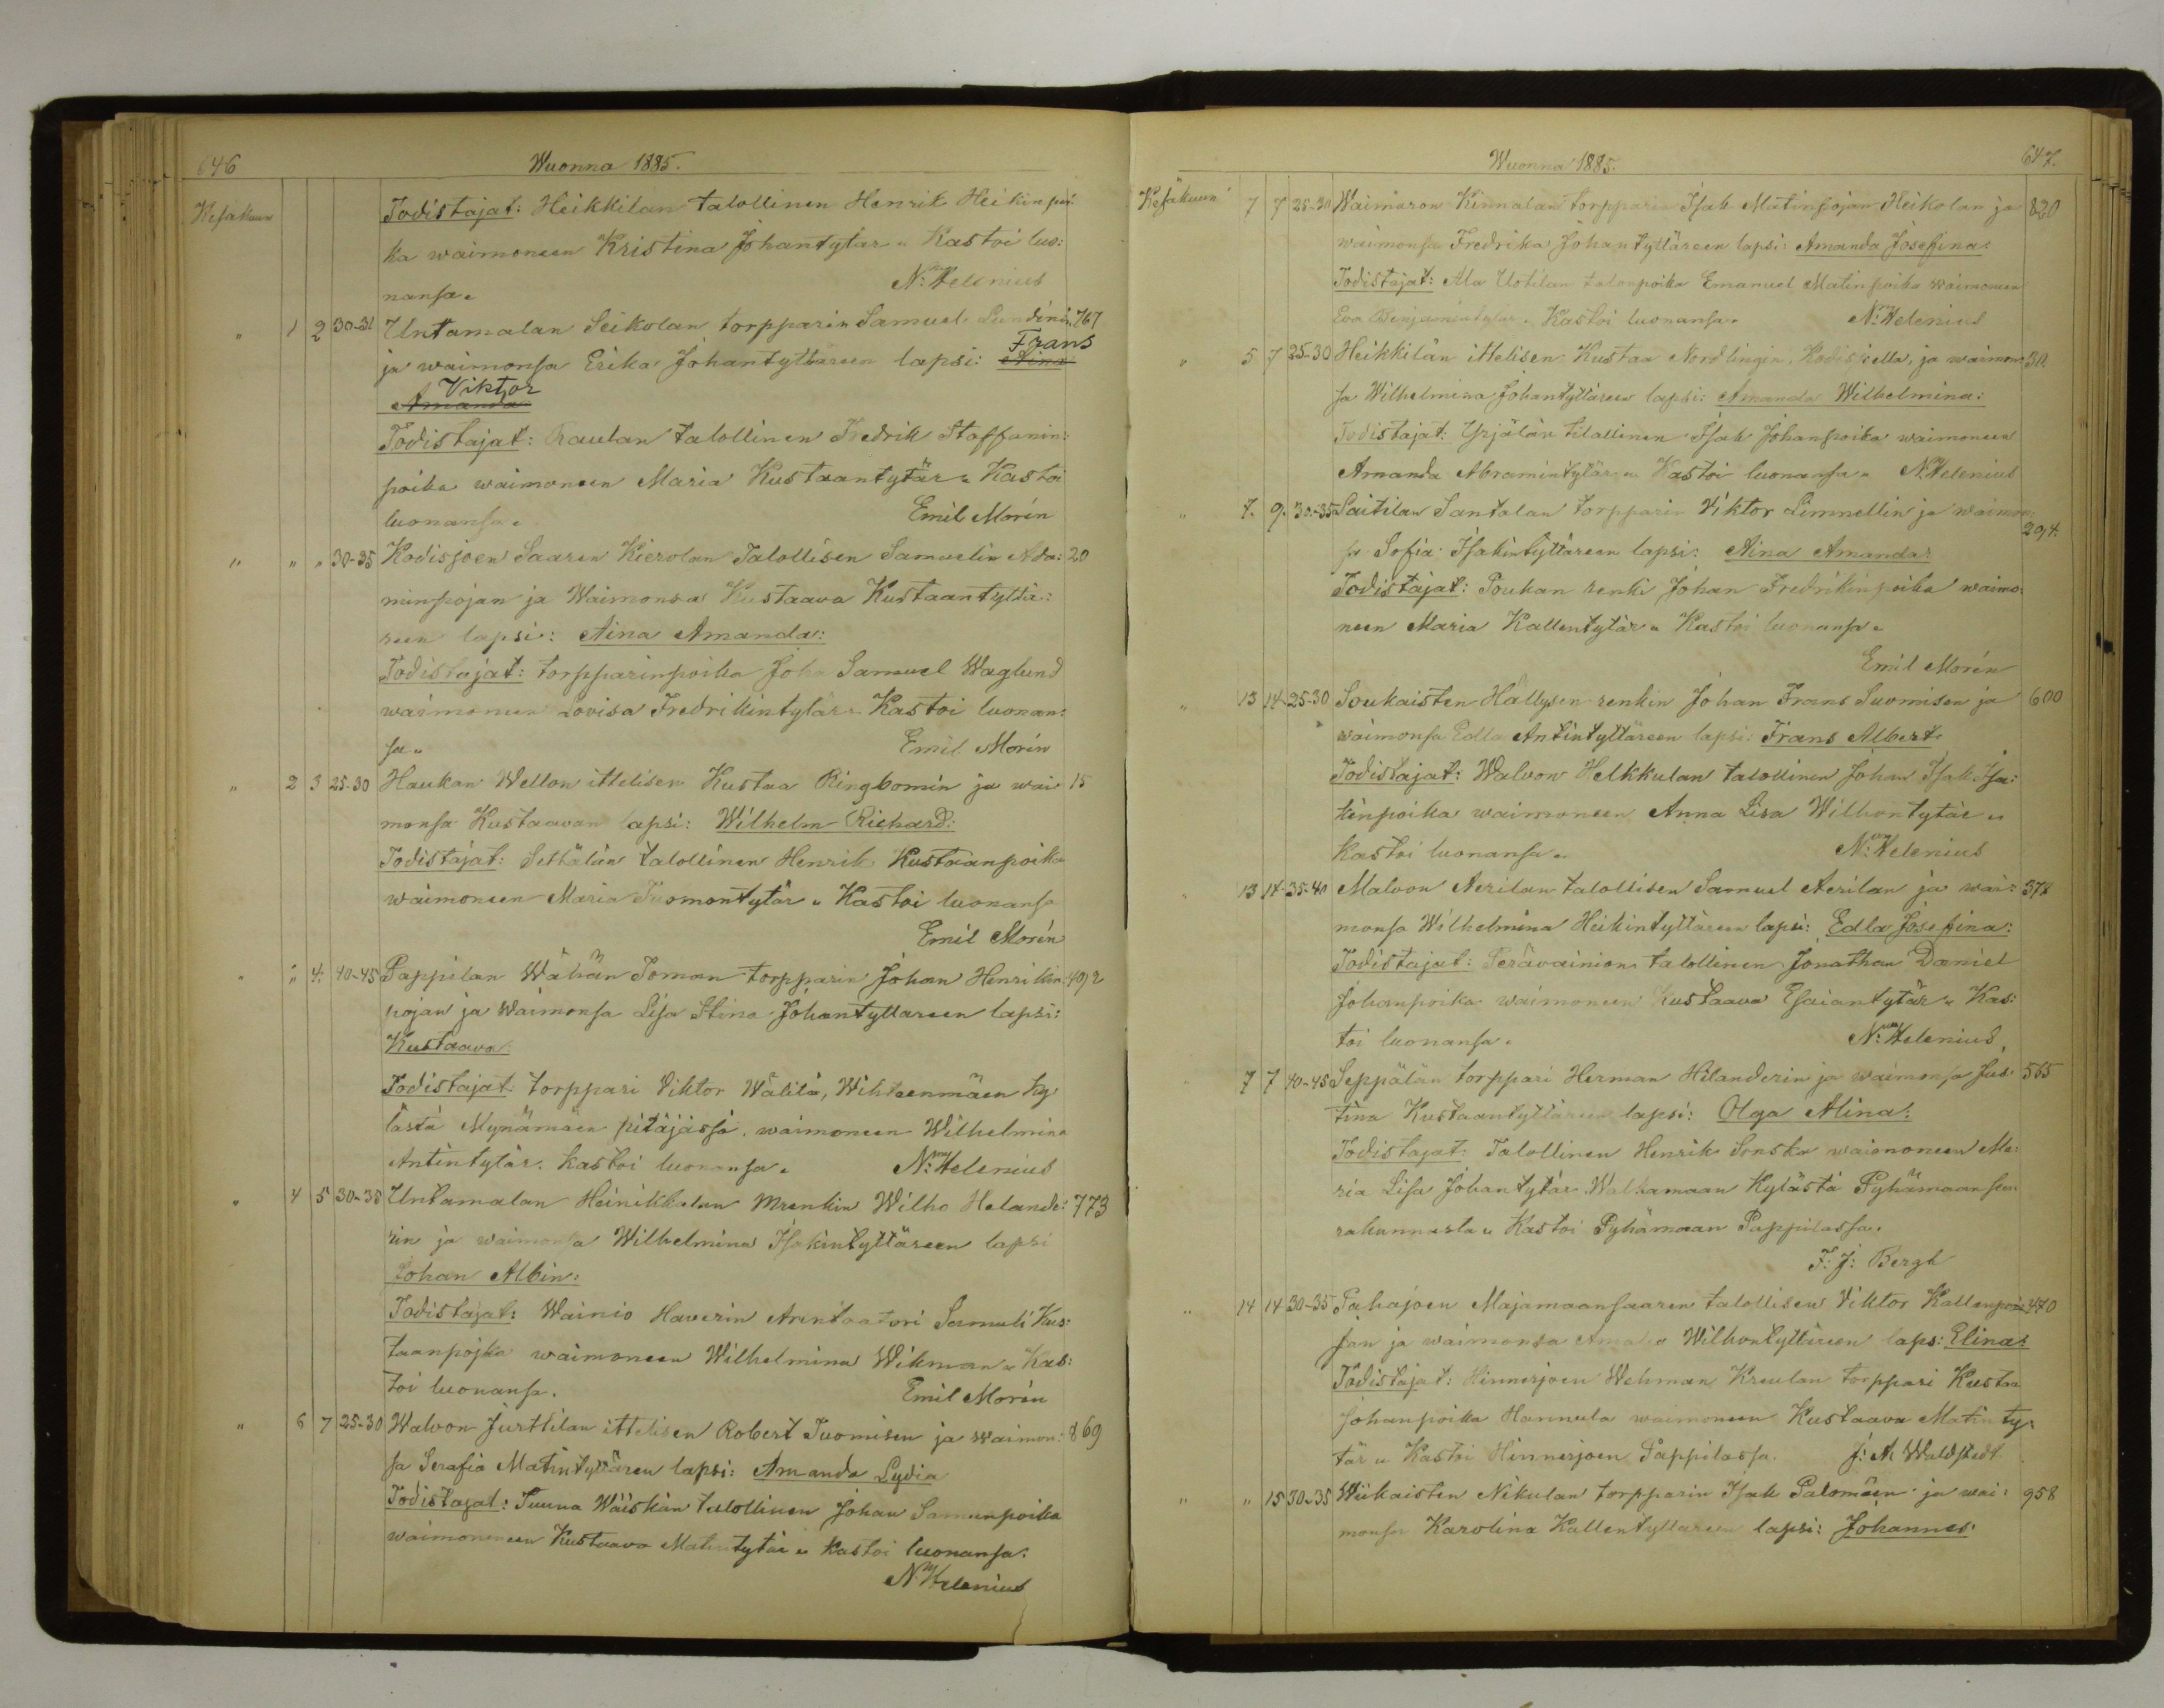 646
Wuonna 1885.
Kesäkuun
Todistajat: Heikkilan talollinen Henrik Heikinpoi
ka waimoneen Kristina Johantytär „ Kastoi luo:
nansa „ N: Helenius
„ 1 2 30-31 Untamalan Seikolan torpparin Samuel Lundinin 767
ja waimonsa Erika Johantyttäreen lapsi: Aina Frans
Amanda Viktor
Todistajat: Raulan talollinen Fredrik Staffanin:
poika waimoneen Maria Kustaantytär „ Kastoi
luonansa „ Emil Morén
„ „ „ 30-35 Kodisjoen Saaren Kierolan Talollisen Samuelin Ada: 20
minpojan ja Waimonsa Kustaava Kustaantyttä:
reen lapsi: Aina Amanda:
Todistajat: torpparinpoika Joha Samuel Waglund
waimoneen Lovisa Fredrikintytär „ Kastoi luonan:
sa „ Emil Morén
„ 2 3 25-30 Haukan Wellon ittelisen Kustaa Ringbomin ja wai 15
monsa Kustaavan lapsi: Wilhelm Richard:
Todistajat: Settälän talollinen Henrik Kustaanpoika
waimoneen Maria Tuomontytär „ Kastoi luonansa
Emil Morén
„ „ 4. 40-45 Pappilan Wähän Toman torpparin Johan Henrikin: 492
pojan ja Waimonsa Lisa Stina Johantyttareen lapsi:
Kustaava:
Todistajat: torppari Viktor Wälilä, Wihtaenmäen ky
lästä Mynämäen pitäjässä, waimoneen Wilhelmina
Antintytär. Kastoi luonansa „ N: Helenius
„ 4 5 30-35 Untamalan Heinikkalan renkin Wilho Helande: 773
rin ja waimonsa Wilhelmina Isakintyttäreen lapsi
Johan Albin:
Todistajat: Wainio Haverin Arentaatori Samuli Kus:
taanpojka waimoneen Wilhelmina Wikman „ Kas:
toi luonansa. Emil Morén
„ 6 7 25-30 Walvon Jurttilan ittelisen Robert Tuomisen ja waimon: 869
sa Serafia Matintyttären lapsi: Amanda Lydia
Todistajat: Suuna Wäiskän talollinen Johan Samunpoika
waimoneneen Kustaava Matintytär „ kastoi luonansa.
N: Helenius
Wuonna 1885.
647.
Kesäkuun 7 7 25-30 Waimaron Kinnalan torpparin Isak Matinpojan Heikolan ja 820
waimonsa Fredrika Johantyttäreen lapsi: Amanda Josefina:
Todistajat: Ala Uotilan talonpoika Emanuel Matinpoika waimoneen
Eva Benjamintytär. Kastoi luonansa. N: Helenius
„ 5 7 25-30 Heikkilän ittelisen Kustaa Nordlingen, Kodisjoella, ja waimon 30.
sa Wilhelmina Johantyttäreen lapsi: Amanda Wilhelmina:
Todistajat: Yrjälän tilallinen Isak Johanpoika waimoneen
Amanda Abramintytär „ Kastoi luonansa „ N: Helenius
„ 7. 9. 30-35 Laitilan Santalan torpparin Viktor Linnellin ja waimon: 294.
sa Sofia Isakintyttäreen lapsi: Aina Amanda:
Todistajat: Poukan renki Johan Fredrikinpoika waimo:
neen Maria Kallentytär „ Kastoi luonansa „
Emil Morén
„ 13 14 25-30 Soukaisten Hällysen renkin Johan Frans Suomisen ja 600
waimonsa Edla Antintyttäreen lapsi: Frans Albert:
Todistajat: Walvon Helkkulan talollinen Johan Isak Isa:
kinpoika waimoneen Anna Lisa Wilhontytär „
Kastoi luonansa „ N: Helenius
„ 13 14 35-40 Malvon Aerilan talollisen Samuel Aerilan ja wai: 378
monsa Wilhelmina Heikintyttäreen lapsi: Edla Josefina:
Todistajat: Terävainion talollinen Jonathan Daniel
Johanpoika waimoneen Kustaava Esaiantytär „ Kas:
toi luonansa. N: Helenius
„ 7 7 40-45 Seppälän torppari Herman Hilanderin ja waimonsa Jus 565
tina Kustaantyttäreen lapsi: Olga Alina:
Todistajat: Talollinen Henrik Sonska waimoneen Ma:
ria Lisa Johantytär Walkamaan Kylästä Pyhämaan seu
rakunnasta „ Kastoi Pyhämaan Pappilassa.
F: J: Bergh
„ 14 14 30-35 Pahajoen Majamaansaaren talollisen Viktor Kallenpoi: 470
jan ja waimonsa Amalia Wilhontyttäreen laps: Elina:
Todistajat: Hinnerjoen Wehman Kreulan torppari Kustaa
Johanpoika Hannula waimoneen Kustaava Matinty:
tär „ Kastoi Hinnerjoen Pappilassa. J: A Waldstedt
„ „ 15 30-35 Wiikaisten Nikulan torpparin Isak Palomäen ja wai: 958
monsa Karolina Kallentyttareen lapsi: Johannes: